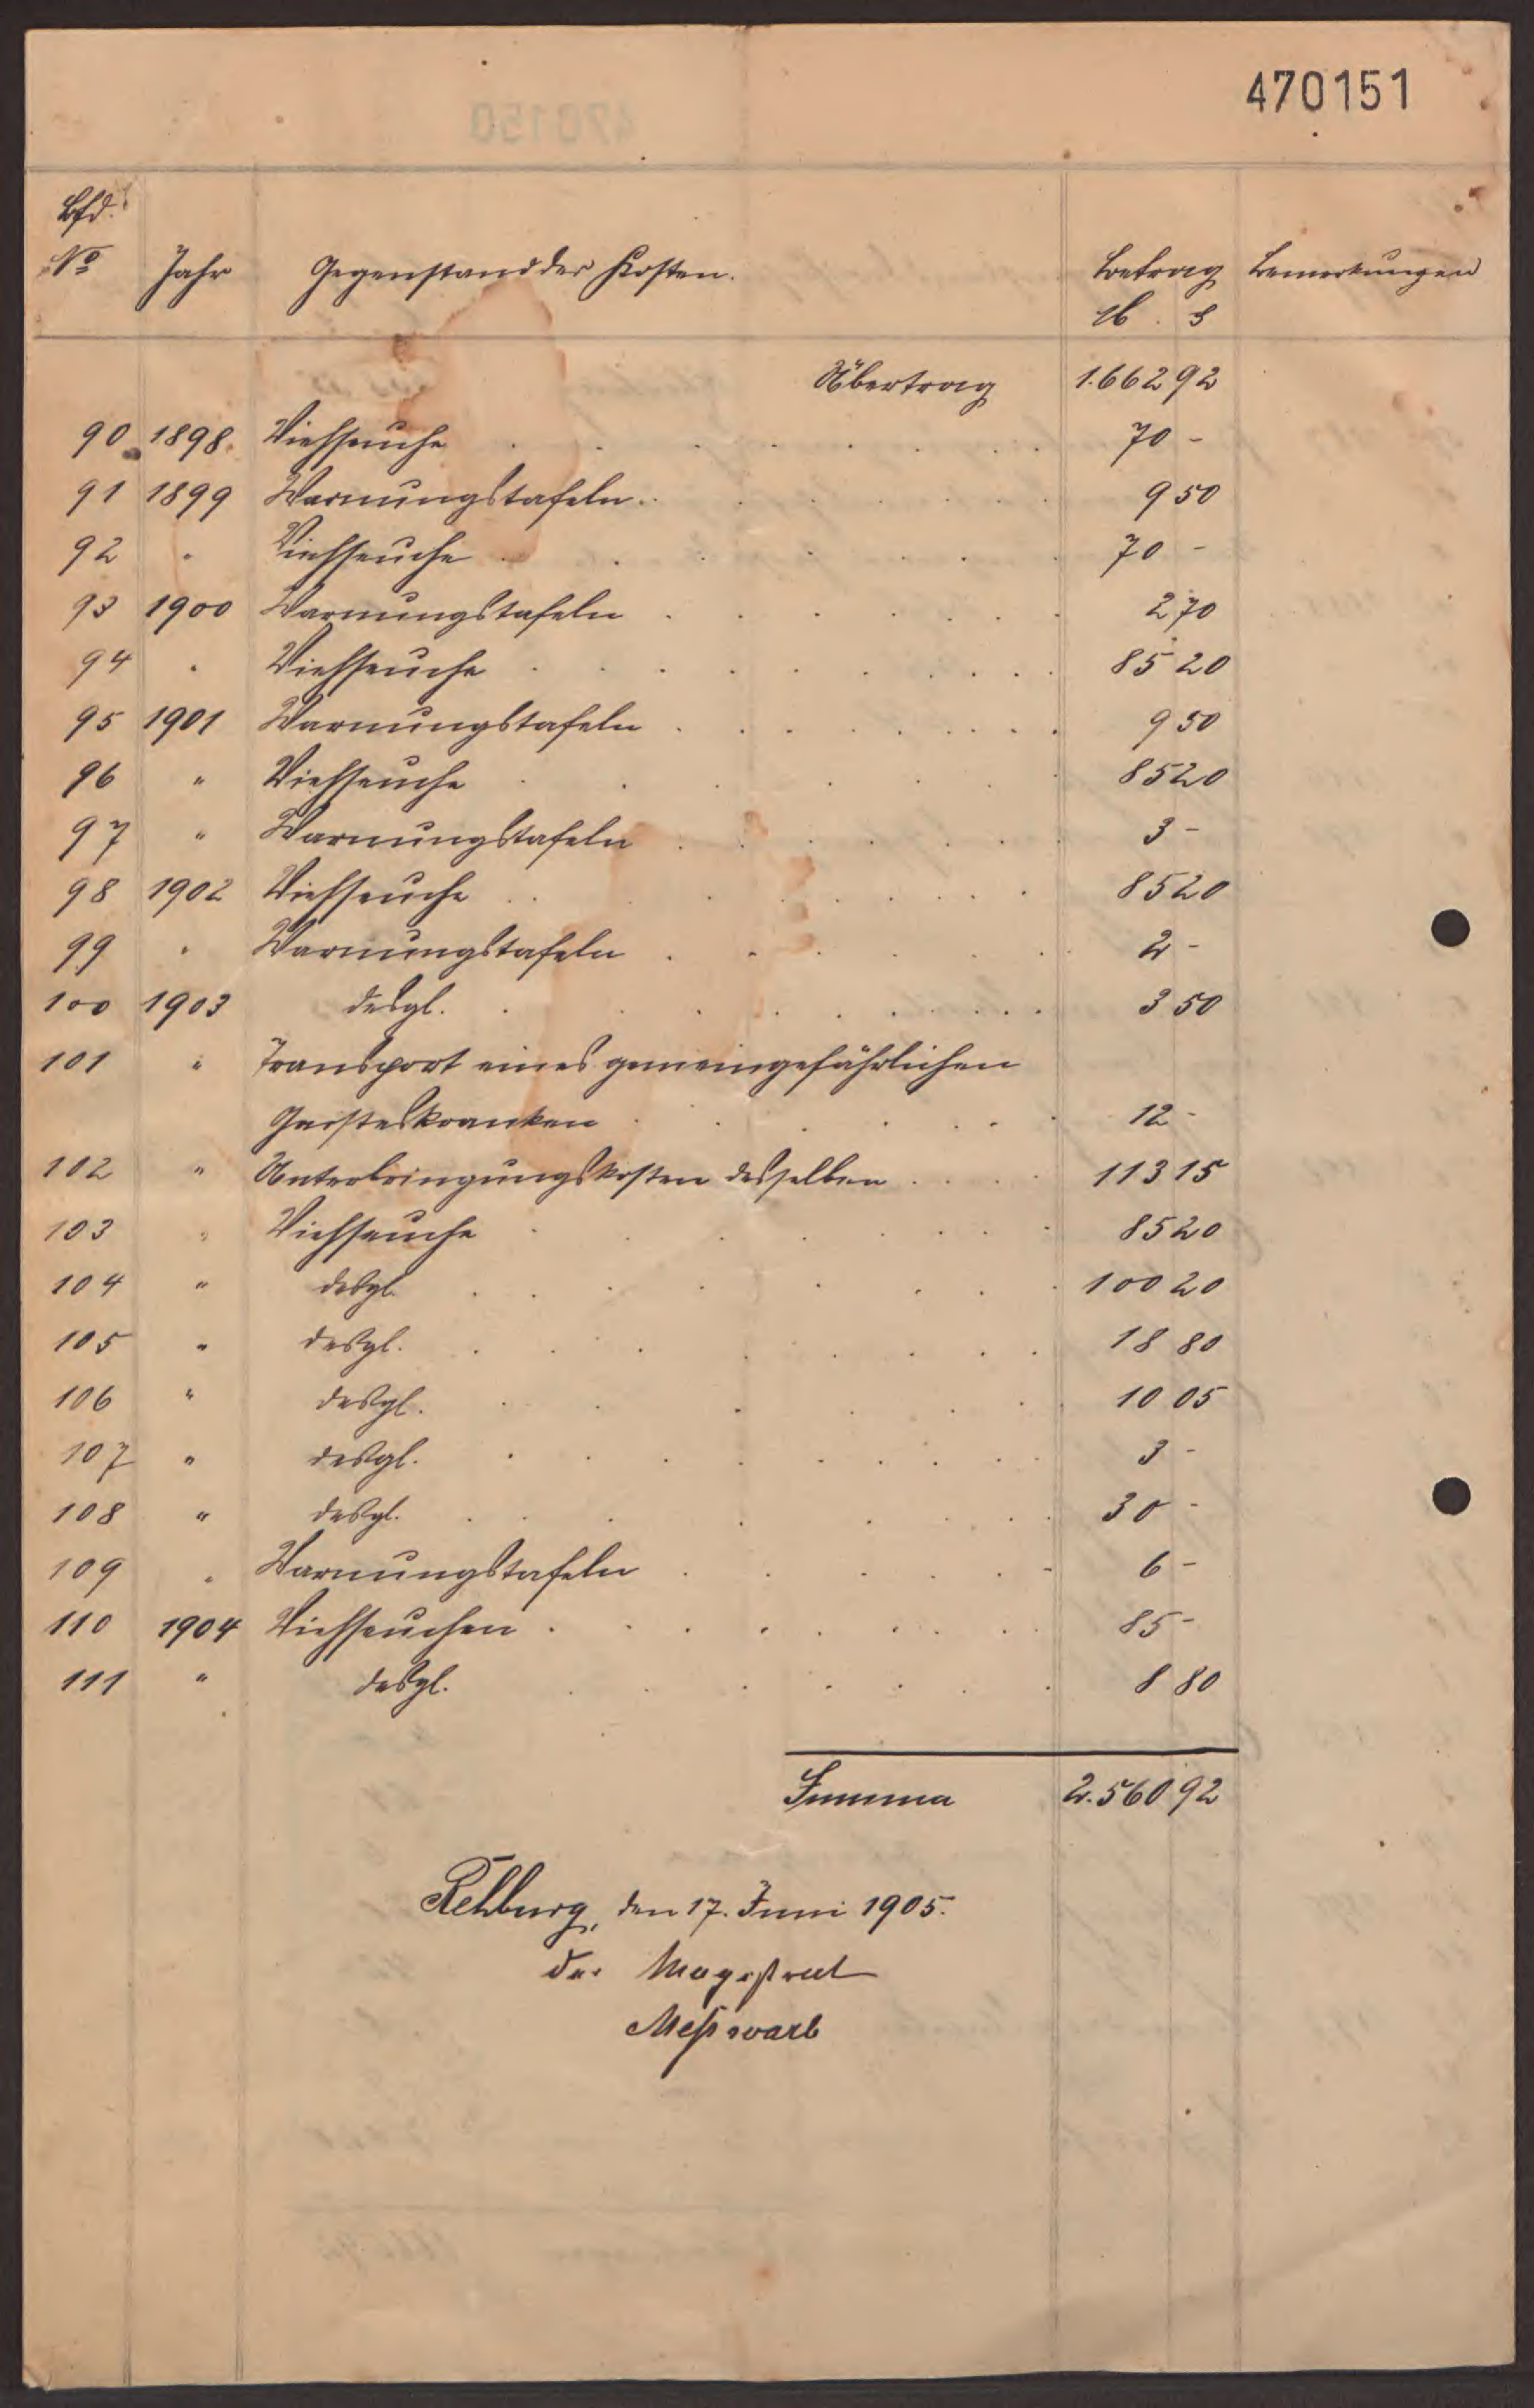 470151
Lfd.
No Jahr Gegenstand der Kosten. Betrag Bemerkungen
M. ₰
Übertrag 1.662 92
90 1898. Viehseuche 70 -
91 1899 Warnungstafeln. 9 50
92 " Viehseuche 70 -
93 1900 Warnungstafeln 2 70
94 " Viehseuche 85 20
95 1901 Warnungstafeln 9 50
96 " Viehseuche 85 20
97 " Warnungstafeln 3 -
98 1902 Viehseuche 85 20
99 " Warnungstafeln 2 -
100 1903 desgl. 3 50
101 " Transport eines gemeingefährlichen
Geisteskranken 12 -
102 " Unterbringungskosten desselben 113 15
103 " Viehseuche 85 20
104 " desgl. 100 20
105 " desgl. 18 80
106 " desgl. 10 05
107 " desgl. 3 -
108 " desgl. 30 -
109 " Warnungstafeln 6 -
110 1904 Viehseuchen 85 -
111 " desgl. 8 80
Summa 2.560 92
Rehburg, den 17. Juni 1905.
Der Magistrat
Meßwarb